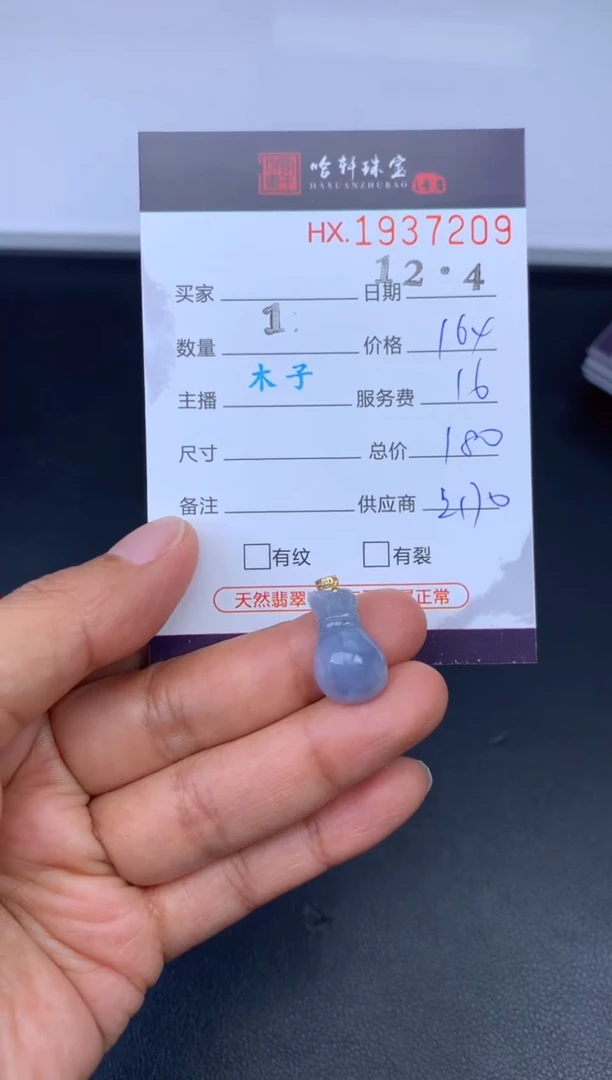 哈轩珠宝
HAXUANZHUBAO
HX.1937209
买家 日期 12·4
数量 1 价格 164
主播 木子 服务费 16
尺寸 总价 180
备注 供应商
有纹 有裂
天然翡翠 正常